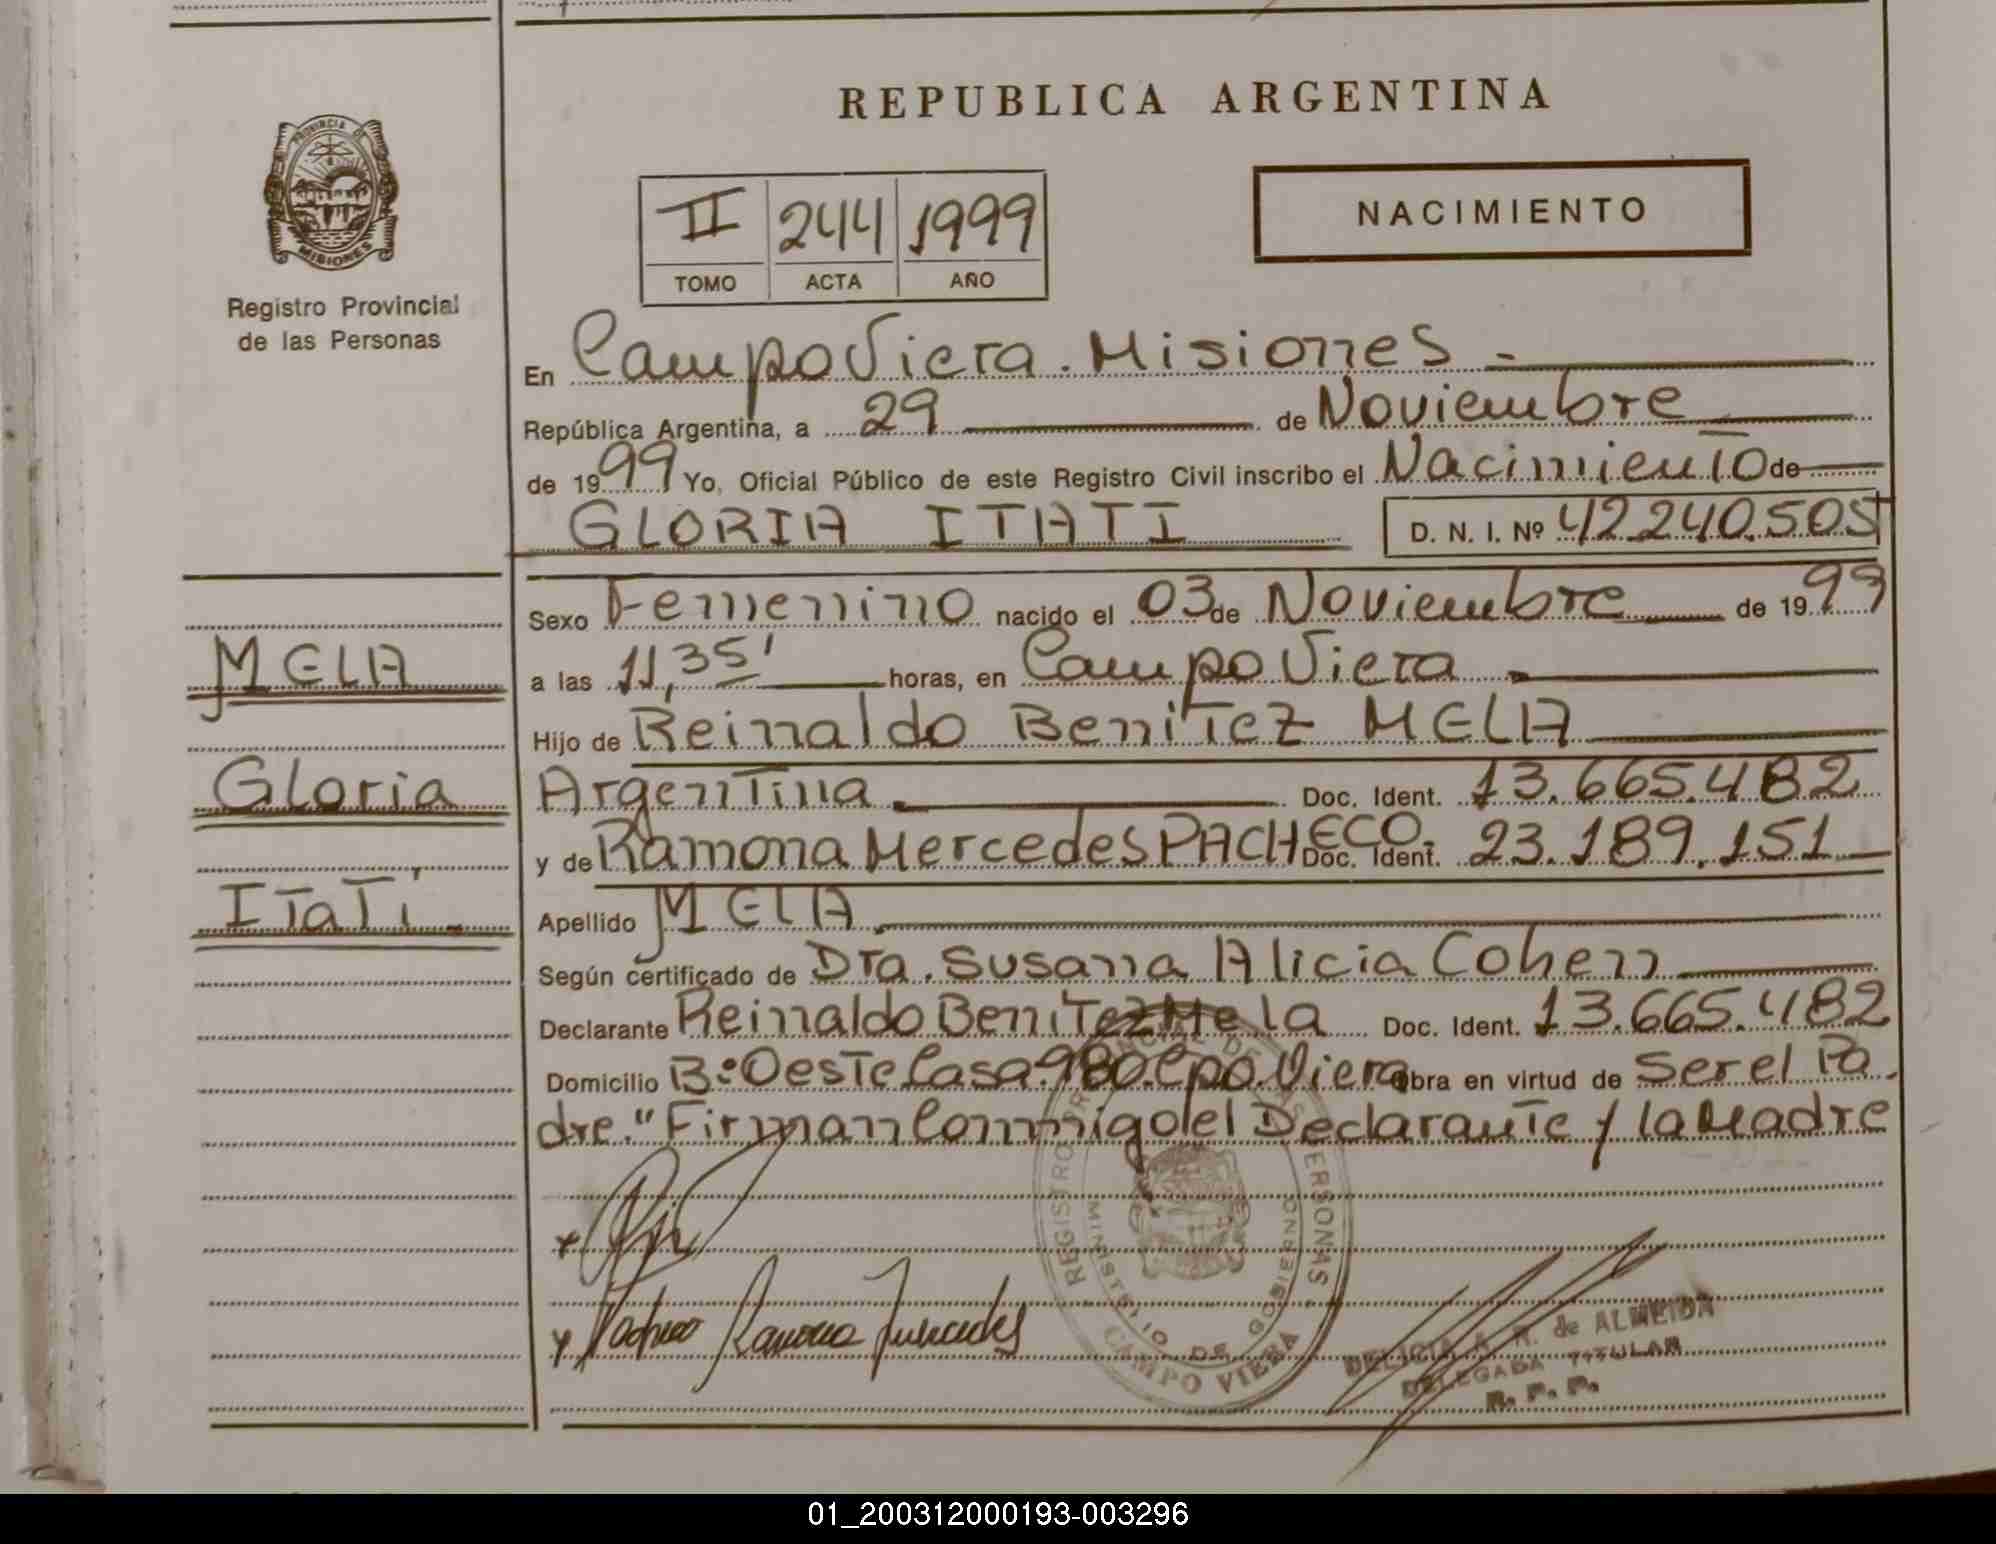 REPUBLICA ARGENTINA
PROVINCIA DE
MISIONES
Registro Provincial
de las Personas
II 244 1999
TOMO ACTA AÑO
NACIMIENTO
En Campo Viera. Misiones -
República Argentina, a 29 de Noviembre
de 1999 Yo, Oficial Público de este Registro Civil inscribo el Nacimiento de
GLORIA ITATI D. N. I. Nº 42.240.505
Sexo Femenino nacido el 03 de Noviembre de 1999
MELA
a las 11,35' horas, en Campo Viera
Hijo de Reinaldo Benitez MELA
Gloria
Argentina Doc. Ident. 13.665.482
y de Ramona Mercedes PACHECO. Doc. Ident. 23.189.151
Itatí
Apellido MELA
Según certificado de Dra. Susana Alicia Cohen
Declarante Reinaldo Benitez Mela Doc. Ident. 13.665.482
Domicilio B:º Oeste Casa 980. Cpo. Viera Obra en virtud de Ser el Pa
dre." Firman Conmigo el Declarante y la Madre
x
x Pacheco Ramona Mercedes
REGISTRO PROVINCIAL DE LAS PERSONAS
MINISTERIO DE GOBIERNO
CAMPO VIERA
DELICIA A. R. de ALMEIDA
DELEGADA TITULAR
R. P. P.
01_200312000193-003296